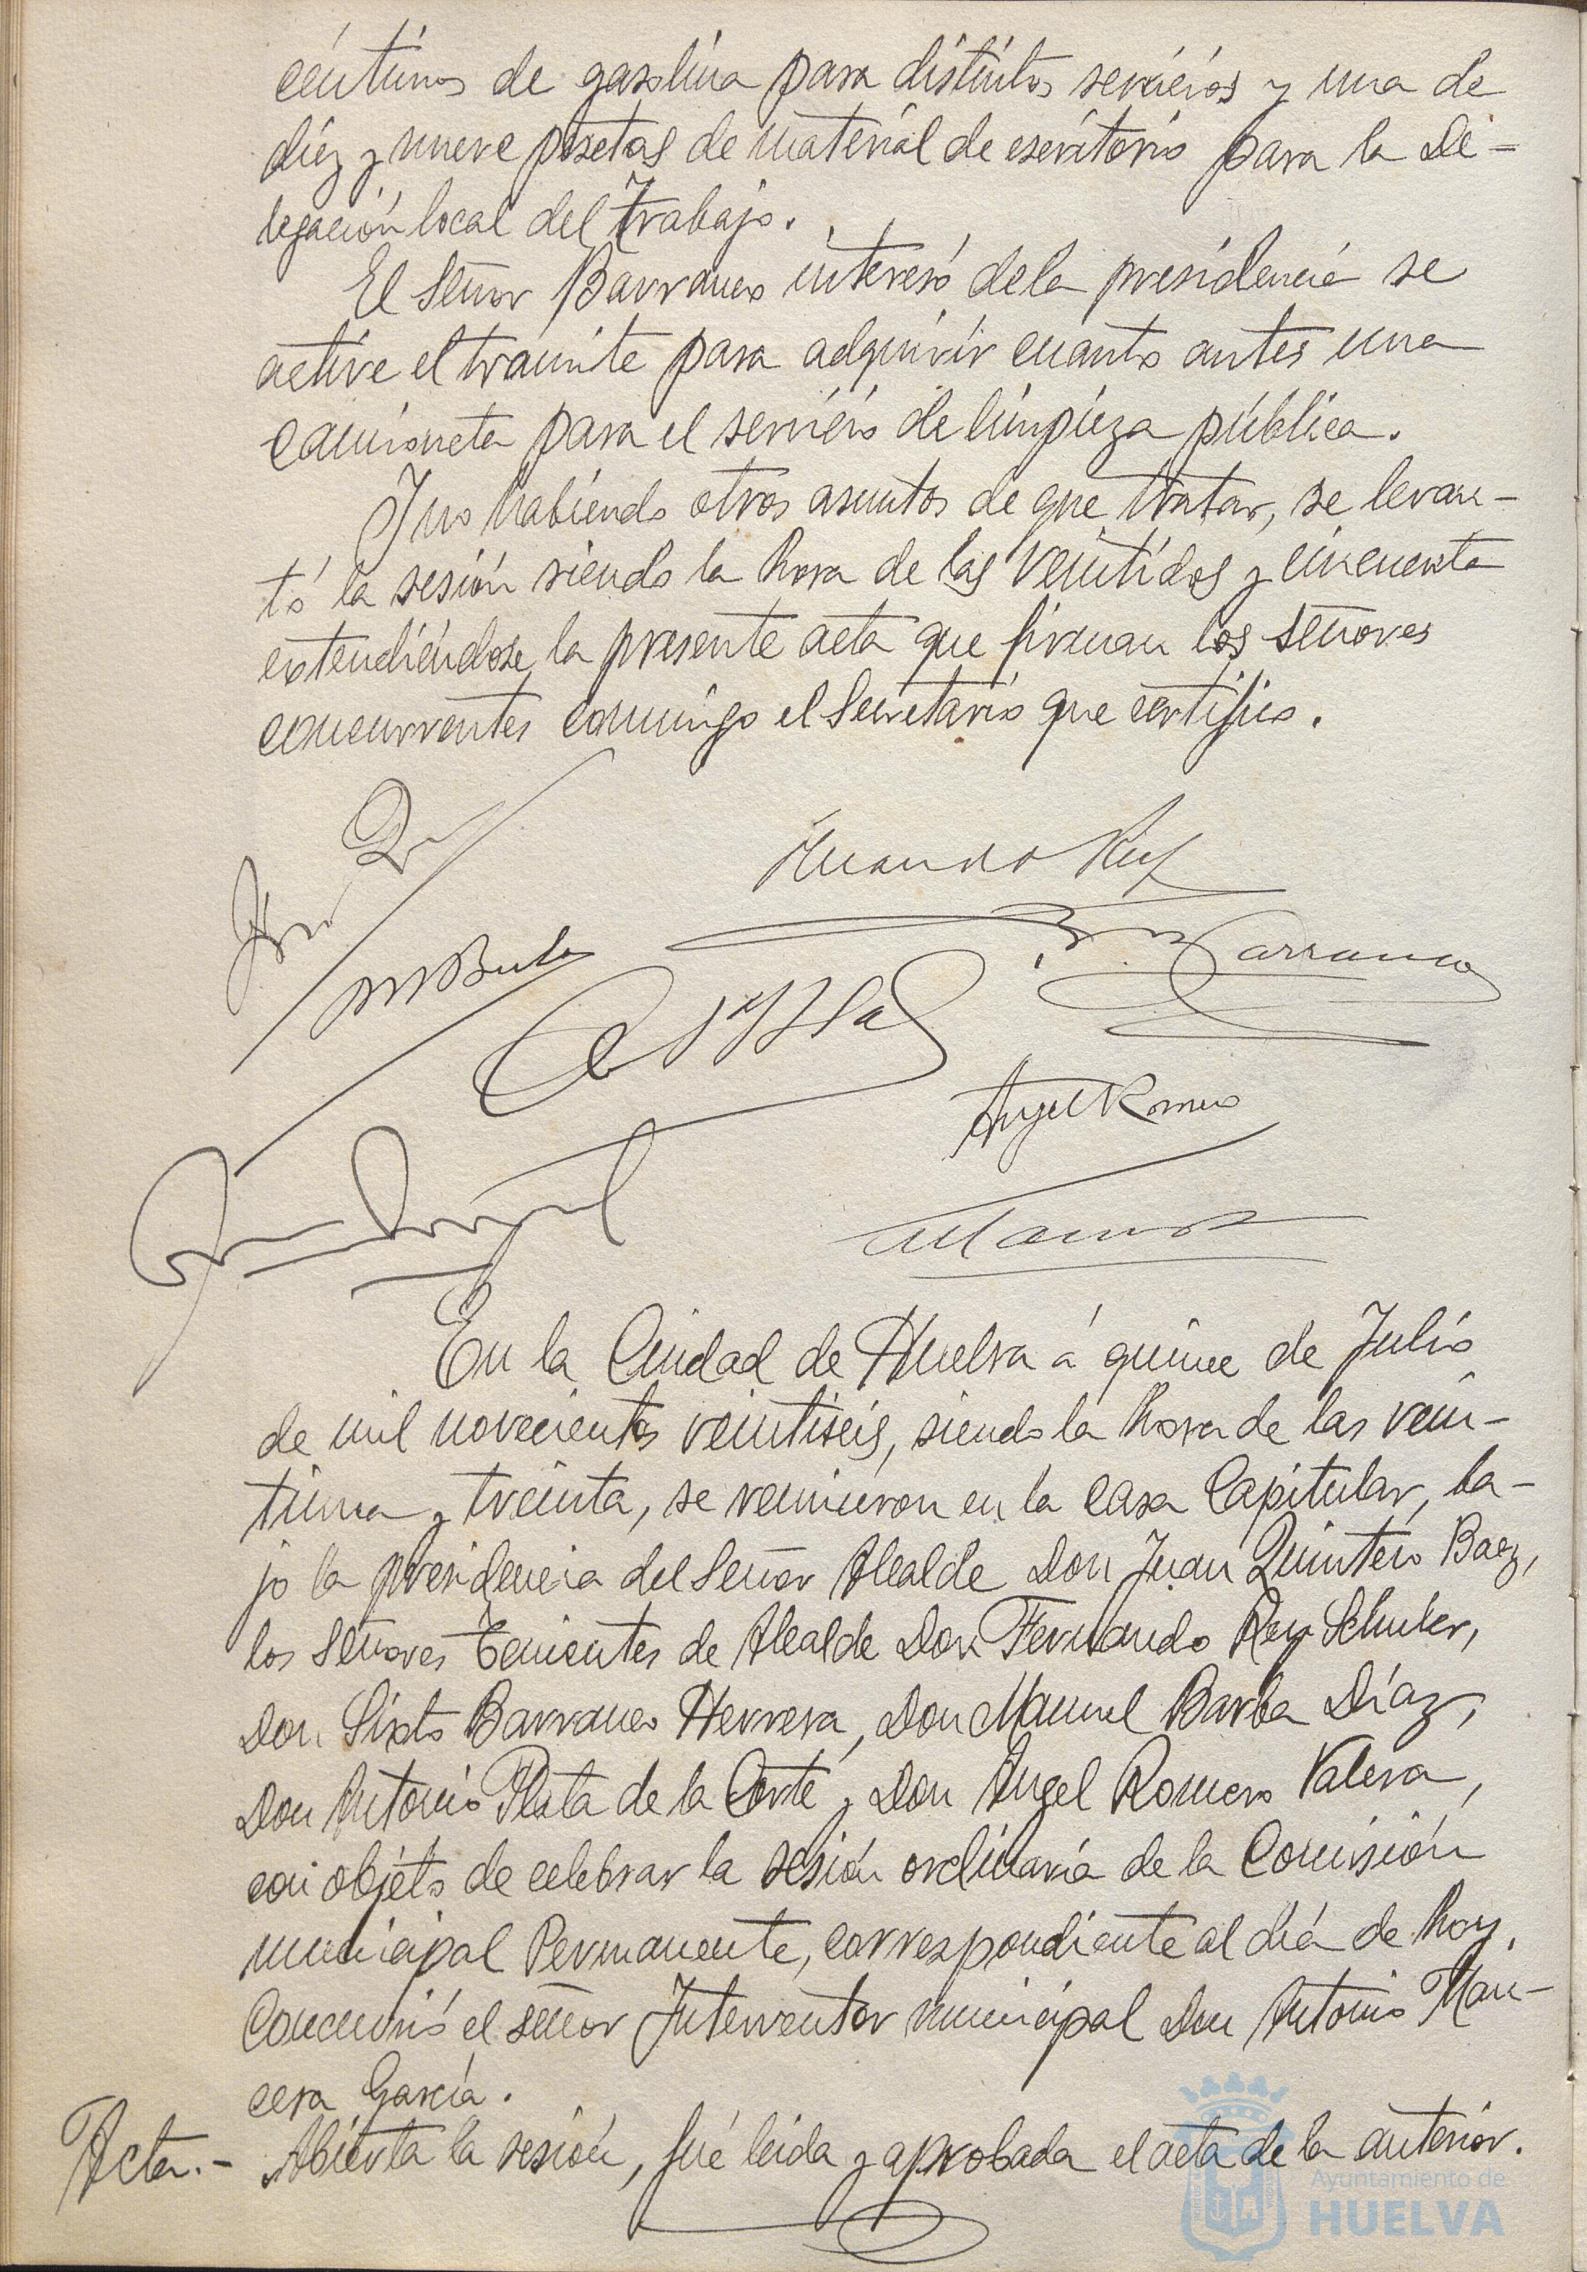 céntimos de gasolina para distintos servicios y una de
diez y nueve pesetas de material de escritorio para la De-
legación local del Trabajo.
El Señor Barranco interesó de la presidencia se
active el tramite para adquirir cuanto antes una
camioneta para el servicio de limpieza pública.
Y no habiendo otros asuntos de que tratar, se levan-
tó la sesión siendo la hora de las veintidos y cincuenta
extendiéndose la presente acta que firman los señores
concurrentes conmigo el Secretario que certifico.
Barranco
Angel Romero
En la Ciudad de Huelva á quince de Julio
de mil novecientos veintiseis, siendo la hora de las vein-
tiuna y treinta, se reunieron en la Casa Capitular, ba-
jo la presidencia del Señor Alcalde Don Juan Quintero Baez,
los Señores Tenientes de Alcalde Don Fernando Rey Schuler,
Don Sixto Barranco Herrera, Don Manuel Barba Díaz,
Don Antonio Plata de la Corte y Don Angel Romero Valera,
con objeto de celebrar la sesión ordinaria de la Comisión
municipal Permanente, correspondiente al día de hoy.
Concurrió el señor Interventor municipal Don Antonio Man-
cera García.
Acta.- Abierta la sesión, fué leida y aprobada el acta de la anterior.
Ayuntamiento de
HUELVA